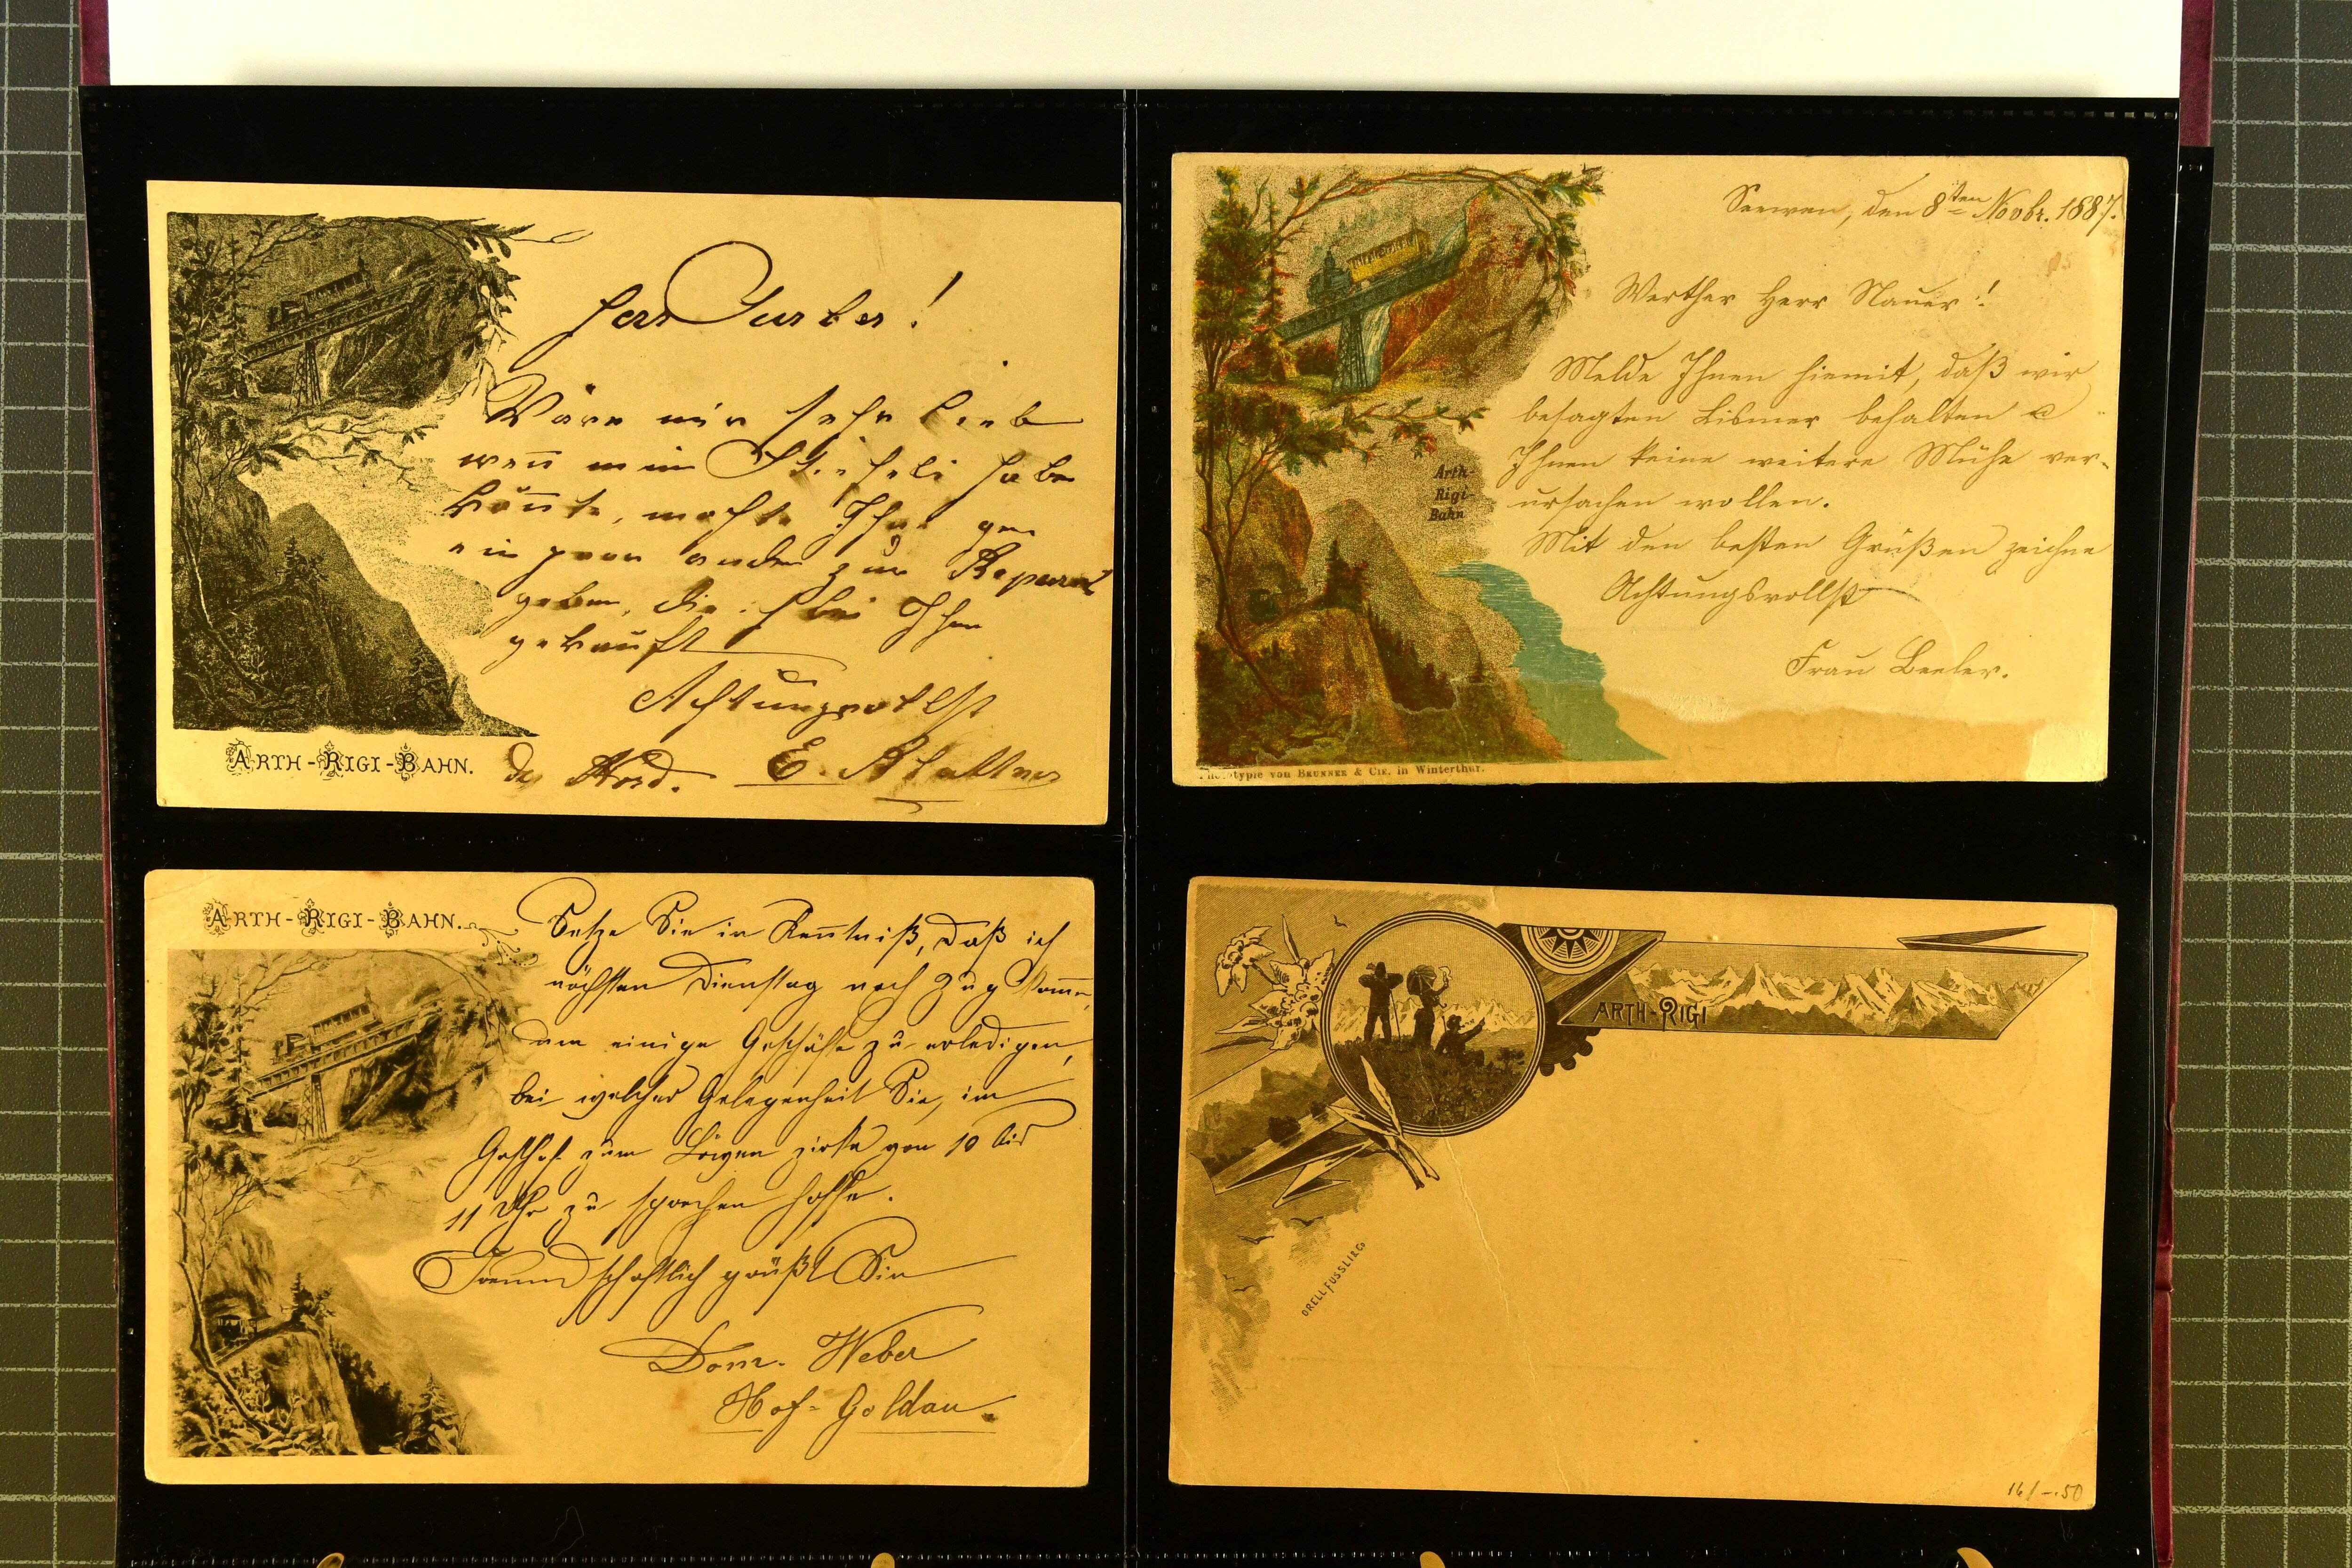 Herr Furber!
Wäre mir sehr lieb
wen̄ mein Stiefeli habe
kön̄te, möchte Ihne gern
ein paar ander zur Reparat
geben, die ich bei Ihne
gekauft
Achtungsvollst
E. Blattner
ARTH-RIGI-BAHN.
Seewen, den 8ten Novbr. 1887.
Werther Herr Nauer!
Melde Ihnen hiemit, daß wir
besagten Lismer behalten &
Ihnen keine weitere Mühe ver-
ursachen wollen.
Mit den besten Grüßen zeichne
Achtungsvollst
Frau Beeler.
Arth-
Rigi-
Bahn
Phototypie von BRUNNER & CIE. in Winterthur.
ARTH-RIGI-BAHN.
Setze Sie in Ken̄tniß, daß ich
nächsten Dienstag nach Zug kom̄e,
um einige Geschäfte zu erledigen,
bei welcher Gelegenheit Sie, im
Gasthof zum Löwen zirka von 10 bis
11 Uhr zu sprechen hoffe.
Freundschaftlich grüßt Sie
Dom. Weber
Hof-Goldau.
ARTH-RIGI
ORELL FUSSLI & Co
16/-.50